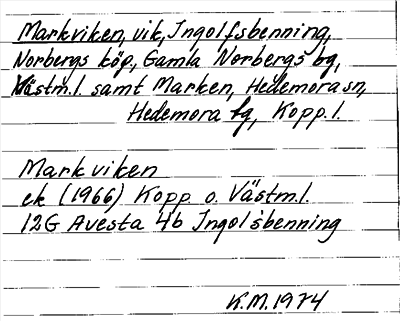 Markviken, vik, Ingolfsbenning,
Norbergs köp, Gamla Norbergs bg,
Västm.l. samt Marken, Hedemora sn,
Hedemora tg, Kopp.l.
Markviken
ek (1966) Kopp. o. Västm.l.
12G Avesta 4b Ingolsbenning
K.M. 1974